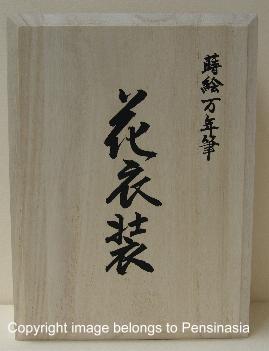 蒔絵万年筆
花衣装
Copyright image belongs to Pensinasia